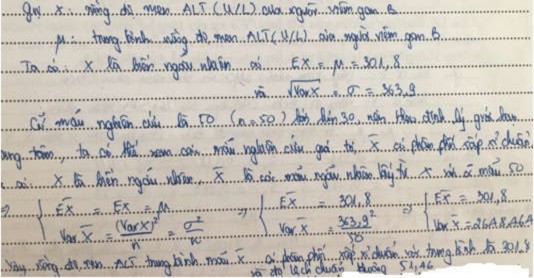 Gọi X: nồng độ men ALT (U/L) của người viêm gan B
μ: trung bình nồng độ men ALT (U/L) của người viêm gan B
Ta có: X là biến ngẫu nhiên có EX = μ = 301,8
và √VarX = σ = 363,9
Cỡ mẫu nghiên cứu là 50 (n = 50) lớn hơn 30, nên theo định lý giới hạn
ung tâm, ta có thể xem các mẫu nghiên cứu giá trị X̄ có phân phối xấp xỉ chuẩn
X là biến ngẫu nhiên, X̄ là các mẫu ngẫu nhiên lấy từ X với cỡ mẫu 50
⇒ { EX̄ = EX = μ ⇒ { EX̄ = 301,8 ⇒ { EX̄ = 301,8
VarX̄ = (VarX)²/n = σ²/n VarX̄ = 363,9²/50 VarX̄ = 2648,464
Vậy nồng độ men ALT trung bình mẫu X̄ có phân phối xấp xỉ chuẩn với trung bình là 301,8
và độ lệch chuẩn 51,46